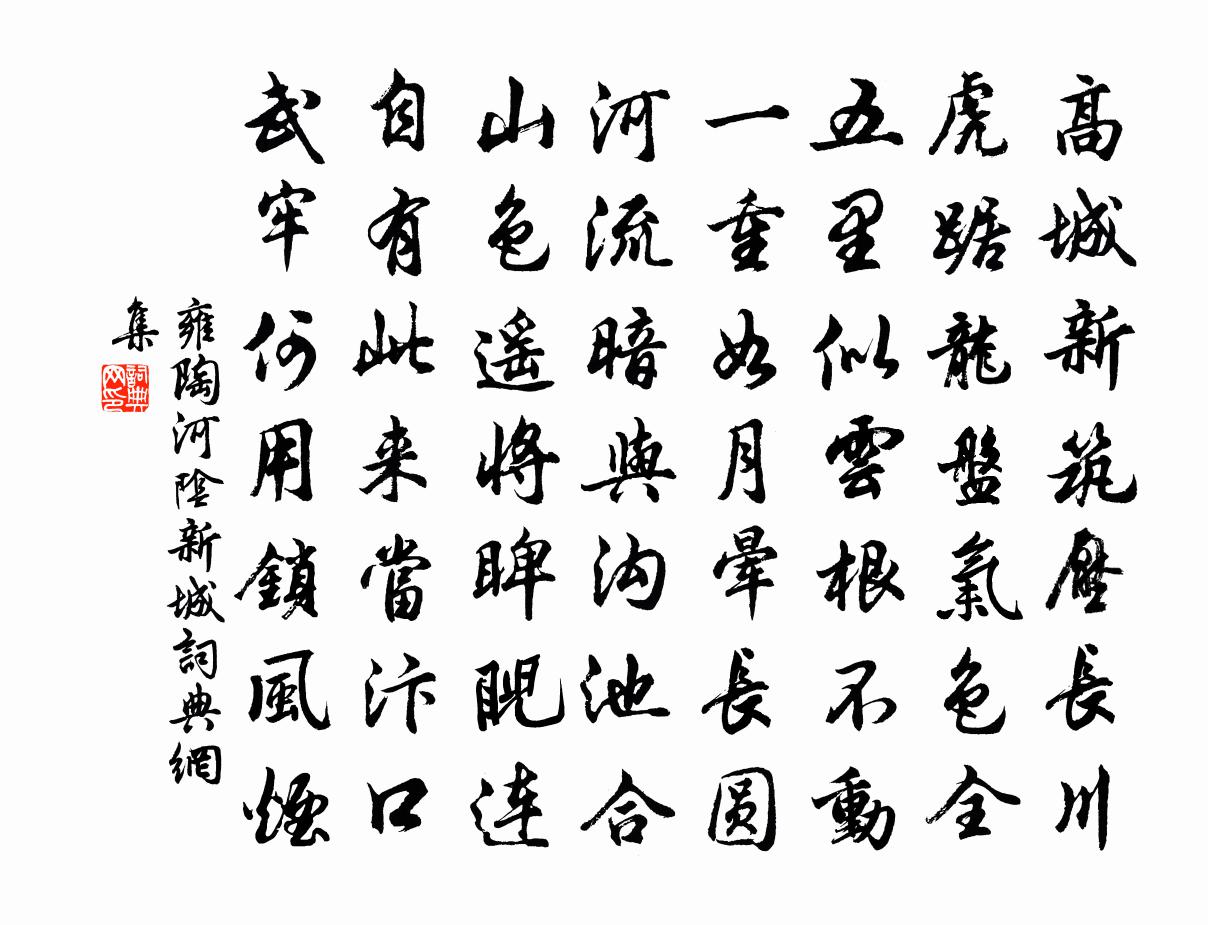 高城新筑壓長川
虎踞龍盤氣色全
五里似雲根不動
一重如月暈長圓
河流暗與溝池合
山色遥將睥睨連
自有此来當汴口
武牢何用鎖風煙
雍陶河陰新城詞典網
集
詞典網印